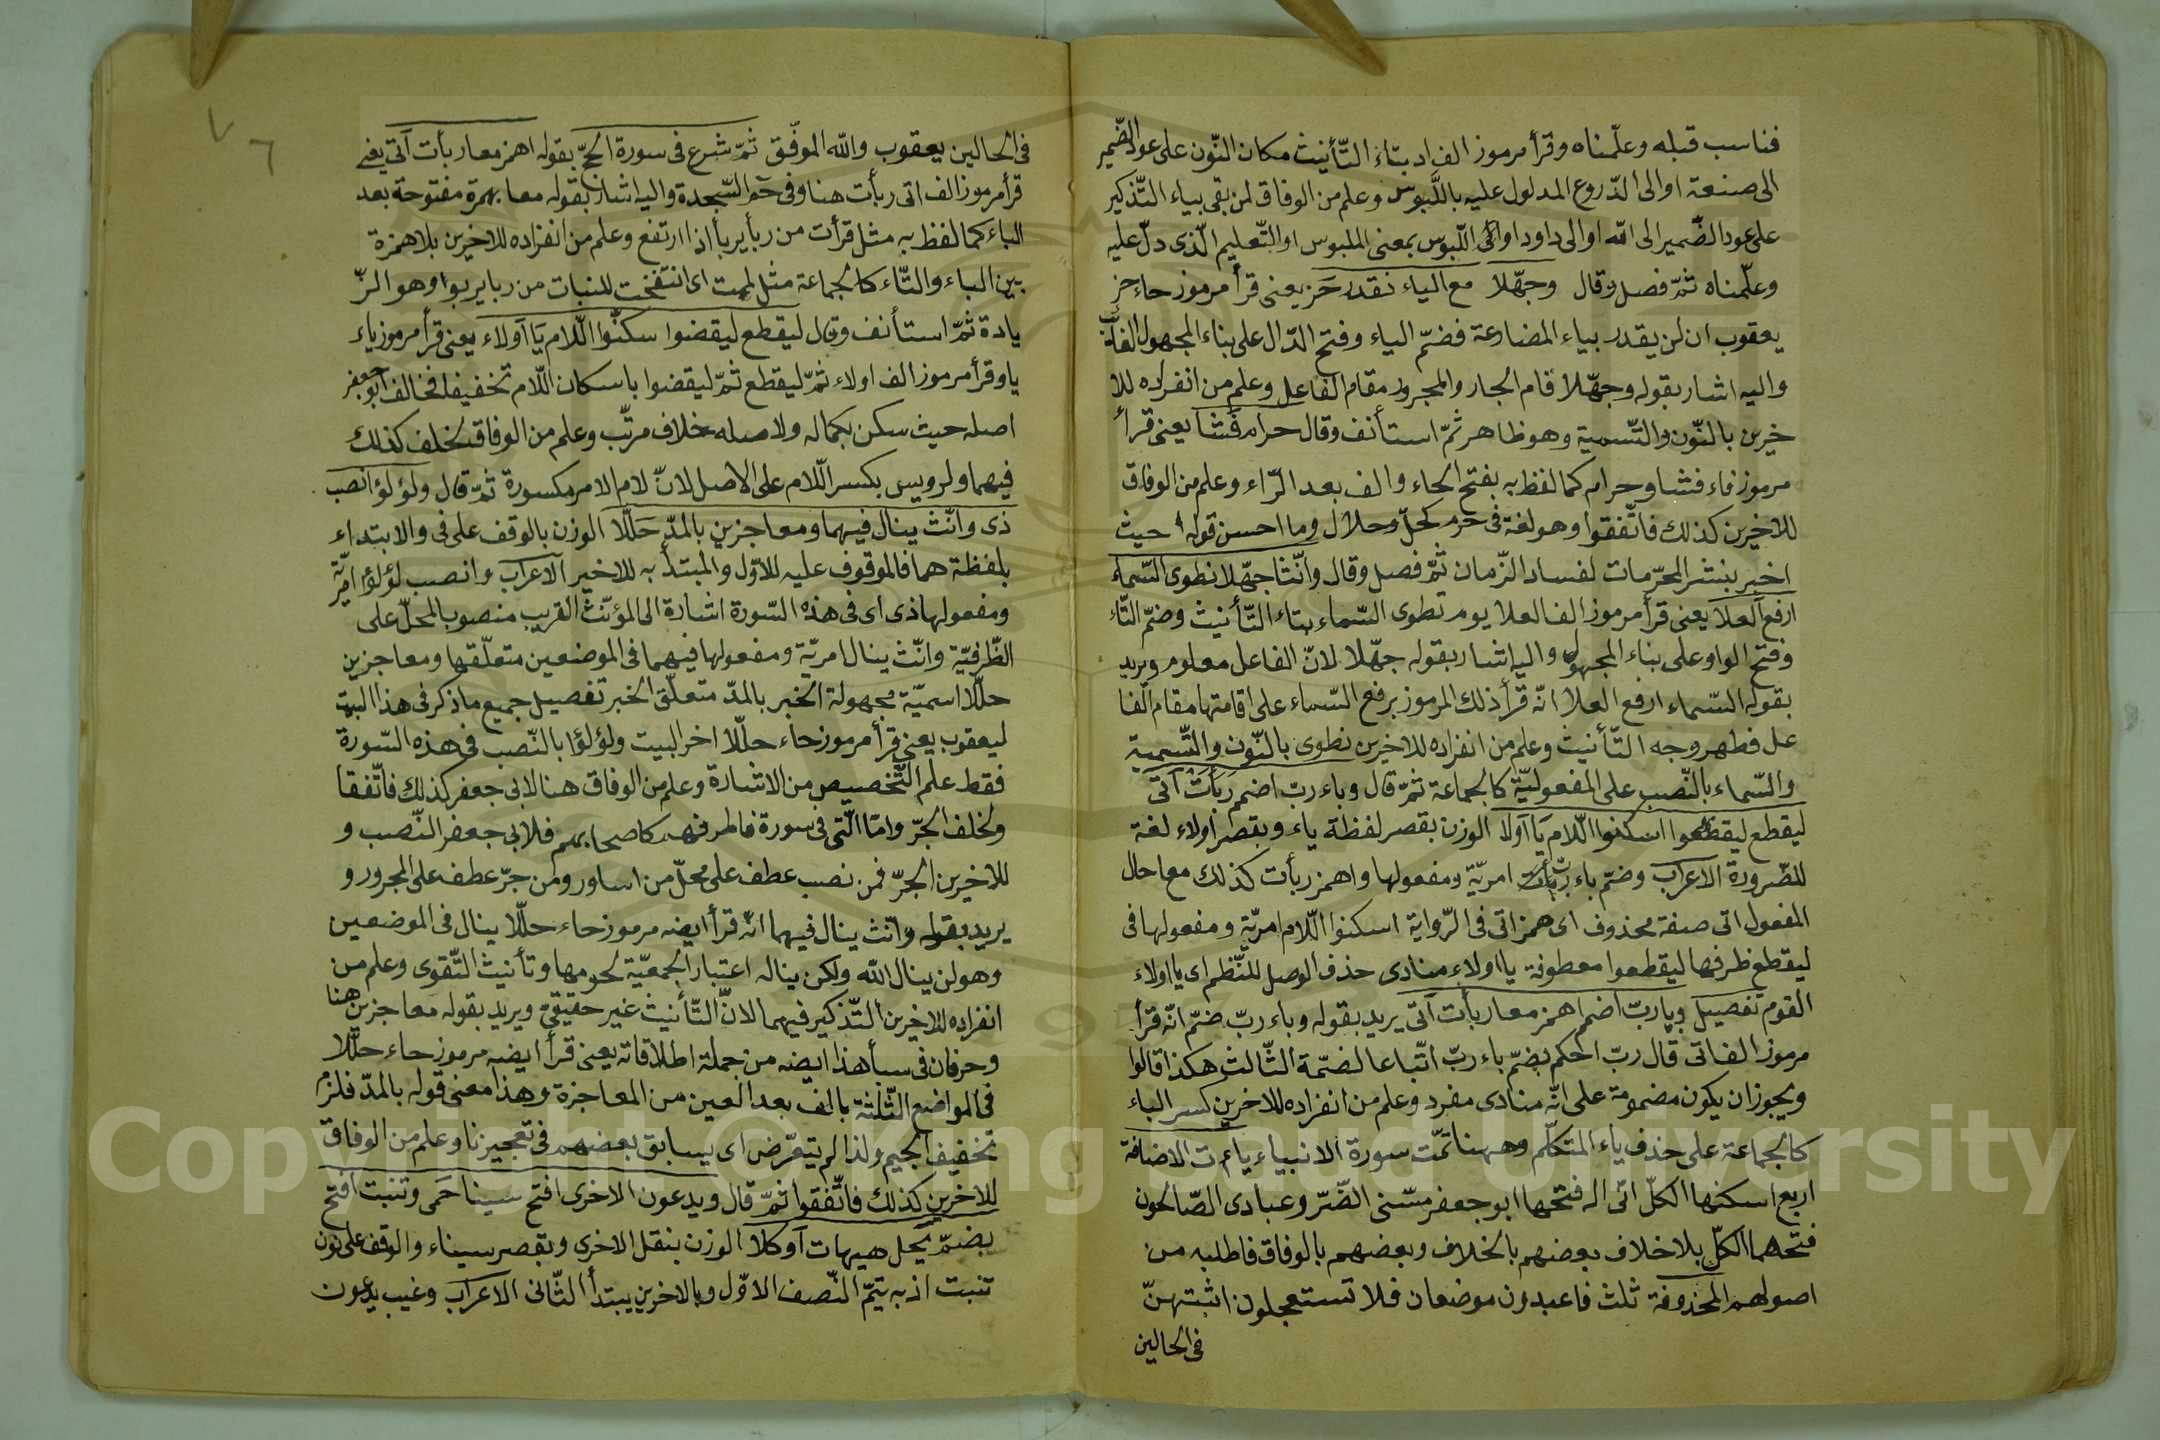 فناسب قبله وعلّمناه وقرأ مرموز الف اد بتاء التّأنيث مكان النّون على عود الضّمير
الى صنعة او الى الدّروع المدلول عليه باللّبوس وعلم من الوفاق لمن بقى بياء التّذكير
على عود الضّمير الى الله او الى داود او الى اللّبوس بمعنى الملبوس او التّعليم الّذى دلّ عليه
وعلّمناه ثمّ فصل وقال وجهّلا مع الياء نقدر حَز يعنى قرأ مرموز حاء حز
يعقوب ان لن يقدر بياء المضارعة فضمّ الياء وفتح الدّال على بناء المجهول الغائب
واليه اشار بقوله وجهّلا قام الجار والمجرور مقام الفاعل وعلم من انفراده للا
خرين بالنّون والتّسمية وهو ظاهر ثمّ استأنف وقال حرام فَشا يعنى قرأ
مرموز فاء فشا وحرام كما لفظ به بفتح الحاء والف بعد الرّاء وعلم من الوفاق
للاخرين كذلك فاتّفقوا وهو لغة فى حرم كحلّ وحلال وما احسن قوله حيث
اخبر بنشر المحرّمات لفساد الزّمان ثمّ فصل وقال وانّثا جهّلا نطوى السّماء
ارفع العلا يعنى قرأ مرموز الف العلا يوم تطوى السّماء بتاء التّأنيث وضمّ التّاء
وفتح الواو على بناء المجهول واليه اشار بقوله جهّلا لانّ الفاعل معلوم ويريد
بقوله السّماء ارفع العلا انّه قرأ ذلك المرموز برفع السّماء على اقامتها مقام الفا
عل فظهر وجه التّأنيث وعلم من انفراده للاخرين نطوى بالنّون والتّسمية
والسّماء بالنّصب على المفعوليّة كالجماعة ثمّ قال وباء ربّ اضمم ربأت اتى
ليقطع ليقضوا اسكنوا اللّام يا اولا الوزن بقصر لفظة ياء وبقصر اولاء لغة
للضّرورة الاعراب وضمّ باء ربّ امريّة ومفعولها واهمز ربأت كذلك معا حال
المفعول اتى صفة محذوف اى همز اتى فى الرّواية اسكنوا اللّام امريّة ومفعولها فى
ليقطع ظرفها ليقطعوا معطوفة يا اولاء منادى حذف الوصل للنّظم اى يا اولاء
القوم تفصيل وبا ربّ اضمم اهمز معا ربأت آتى يريد بقوله وباء ربّ ضمّ انّه قرأ
مرموز الف اتى قال ربّ احكم بضمّ باء ربّ اتّباعا لضمّة الثّالث هكذا قالوا
ويجوز ان يكون مضمومة على انّه منادى مفرد وعلم من انفراده للاخرين كسر الباء
كالجماعة على حذف ياء المتكلّم وههنا تمّت سورة الانبياء ياءت الاضافة
اربع اسكنها الكلّ انّى اله فتحها ابو جعفر مسّنى الضّرّ وعبادى الصّالحون
فتحهما الكلّ بلا خلاف بعضهم بالخلاف وبعضهم بالوفاق فاطلبه من
اصولهم المحذوفة ثلث فاعبدون موضعان فلا تستعجلون اثبتهنّ
فى الحالين
فى الحالين يعقوب والله الموفّق ثمّ شرع فى سورة الحجّ بقوله اهمز معا ربأت آتى يعنى
قرأ مرموز الف اتى ربأت هنا وفى حم السّجدة واليه اشار بقوله معا بهمزة مفتوحة بعد
الباء كما لفظ به مثل قرأت من ربأ يربأ اذا ارتفع وعلم من انفراده للاخرين بلا همزة
بين الباء والتّاء كالجماعة مثل لمت اى انتفخت للنبات من ربا يربوا وهو الزّ
يادة ثمّ استأنف وقال ليقطع ليقضوا سكنّوا اللّام يَا اولاء يعنى قرأ مرموز ياء
يا وقرأ مرموز الف اولاء ثمّ ليقطع ثمّ ليقضوا باسكان اللّام تخفيفا فخالف ابو جعفر
اصله حيث سكن بكماله ولاصله خلاف مرتّب وعلم من الوفاق لخلف كذلك
فيهما ولرويس بكسر اللّام على الاصل لانّ لام الامر مكسورة ثمّ قال ولؤلؤ انصب
ذى وانّث ينال فيهما ومعاجزين بالمدّ حَلّلا الوزن بالوقف على فى والابتداء
بلفظة هما فالموقوف عليه للاوّل والمبتدأ به للاخير الاعراب وانصب لؤلؤا امريّة
ومفعولها ذى اى فى هذه السّورة اشارة الى المؤنّث القريب منصوب المحلّ على
الظّرفيّة وانّث ينال امريّة ومفعولها فيهما فى الموضعين متعلّقها ومعاجزين
حلّلا اسميّة مجهولة الخبر بالمدّ متعلّق الخبر تفصيل جميع ما ذكر فى هذا البيت
ليعقوب يعنى قرأ مرموز حاء حلّلا اخر البيت ولؤلؤا بالنّصب فى هذه السّورة
فقط علم التّخصيص من الاشارة وعلم من الوفاق هنا لابى جعفر كذلك فاتّفقا
ولخلف الجرّ وامّا الّتى فى سورة فاطر فهم كاصحابهم فلابى جعفر النّصب و
للاخرين الجرّ فمن نصب عطف على محلّ من اساور ومن جرّ عطف على المجرور و
يريد بقوله وانّث ينال فيهما انّه قرأ ايضه مرموز حاء حلّلا ينال فى الموضعين
وهو لن ينال الله ولكن يناله اعتبار الجمعيّة لحومها وتأنيث التّقوى وعلم من
انفراده للاخرين التّذكير فيهما لانّ التّأنيث غير حقيقىّ ويريد بقوله معاجزين هنا
وحرفان فى سبأ هذا ايضه من جملة اطلاقاته يعنى قرأ ايضه مرموز حاء حلّلا
فى المواضع الثّلثة بالف بعد العين من المعاجزة وهذا معنى قوله بالمدّ فلزم
تخفيف الجيم ولذا لم يتعرّض اى يسابق بعضهم فى تعجيزنا وعلم من الوفاق
للاخرين كذلك فاتّفقوا ثمّ قال ويدعون الاخرى افتح سينا حَمى وتنبت افتح
بضمّ يَحل هيهات آوكلا الوزن بنقل الاخرى وبقصر سيناء والوقف على نون
تنبت اذ به يتمّ النّصف الاوّل وبالاخرين يبتدأ الثّانى الاعراب وغيب يدعون
٧٦
Copyright © King Saud University